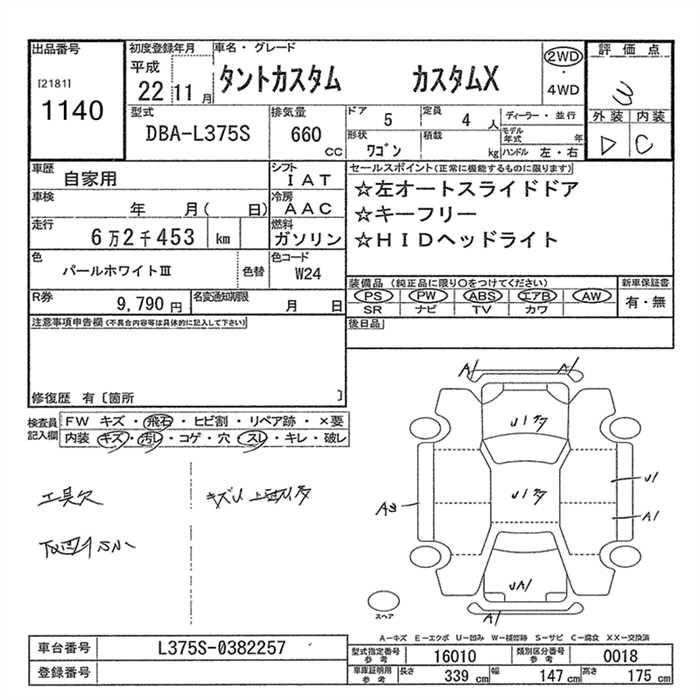 出品番号
[2181]
1140
初度登録年月
平成
22 11 月
車名・グレード
タントカスタム カスタムX
2WD
・
4WD
評価点
3
外装 内装
D C
型式
DBA-L375S
排気量
660
CC
ドア 5
定員 4 人
形状
ワゴン
積載
kg
ディーラー・並行
モデル年式 年
ハンドル 左・右
車歴
自家用
シフト
IAT
車検
年 月( 日)
冷房
AAC
走行
6万2千453 km
燃料
ガソリン
色
パールホワイトⅢ
色替
色コード
W24
R券
9,790 円
名変通知期限
月 日
セールスポイント(正常に機能するものに限ります)
☆左オートスライドドア
☆キーフリー
☆HIDヘッドライト
装備品(純正品に限り○をつけてください)
PS PW ABS エアB AW
SR ナビ TV カワ
新車保証書
有・無
後日品
注意事項申告欄(不具合内容等は具体的に記入して下さい)
修復歴 有〔箇所 〕
検査員
記入欄
FW キズ・飛石・ヒビ割・リペア跡・×要
内装 キズ・汚レ・コゲ・穴・スレ・キレ・破レ
工具欠
A1
A1
U1
U1
A3
U1
A1
UA1
A1
スペア
A−キズ E−エクボ U−凹み W−補修跡 S−サビ C−腐食 XX−交換済
車台番号
L375S-0382257
登録番号
型式指定番号
参考
16010
類別区分番号
参考
0018
車庫証明用
参考
長さ 339 cm
幅 147 cm
高さ 175 cm